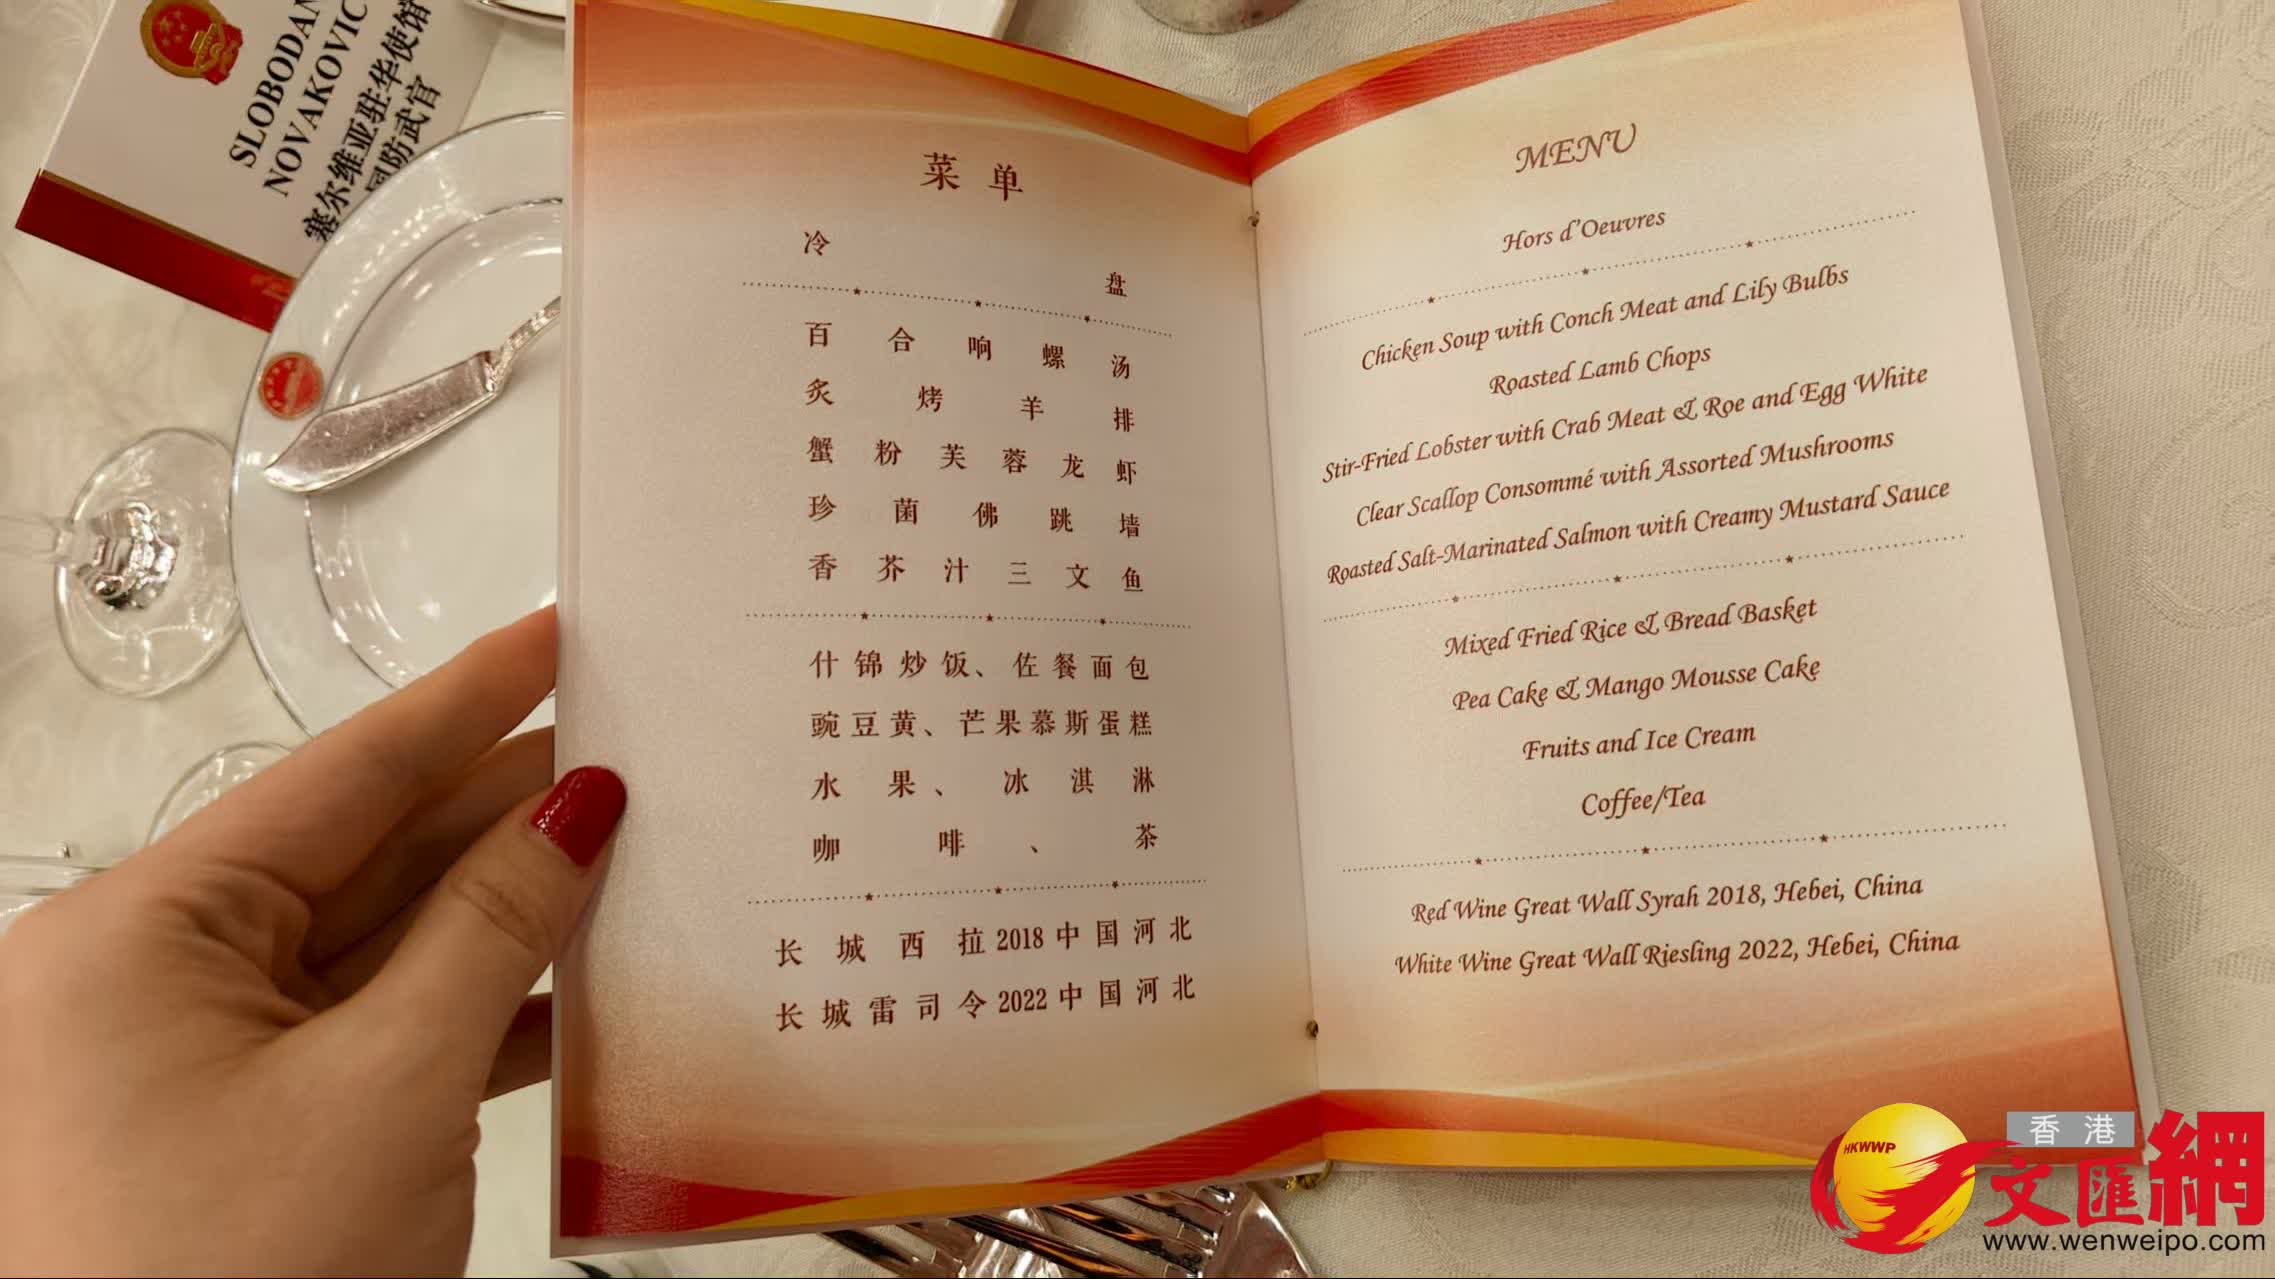 SLOBODAN
NOVAKOVIC
塞尔维亚驻华使馆
国防武官
菜单
冷盘
百合响螺汤
炙烤羊排
蟹粉芙蓉龙虾
珍菌佛跳墙
香芥汁三文鱼
什锦炒饭、佐餐面包
豌豆黄、芒果慕斯蛋糕
水果、冰淇淋
咖啡、茶
长城西拉2018中国河北
长城雷司令2022中国河北
MENU
Hors d'Oeuvres
Chicken Soup with Conch Meat and Lily Bulbs
Roasted Lamb Chops
Stir-Fried Lobster with Crab Meat & Roe and Egg White
Clear Scallop Consommé with Assorted Mushrooms
Roasted Salt-Marinated Salmon with Creamy Mustard Sauce
Mixed Fried Rice & Bread Basket
Pea Cake & Mango Mousse Cake
Fruits and Ice Cream
Coffee/Tea
Red Wine Great Wall Syrah 2018, Hebei, China
White Wine Great Wall Riesling 2022, Hebei, China
HKWWP
香港
文匯網
www.wenweipo.com